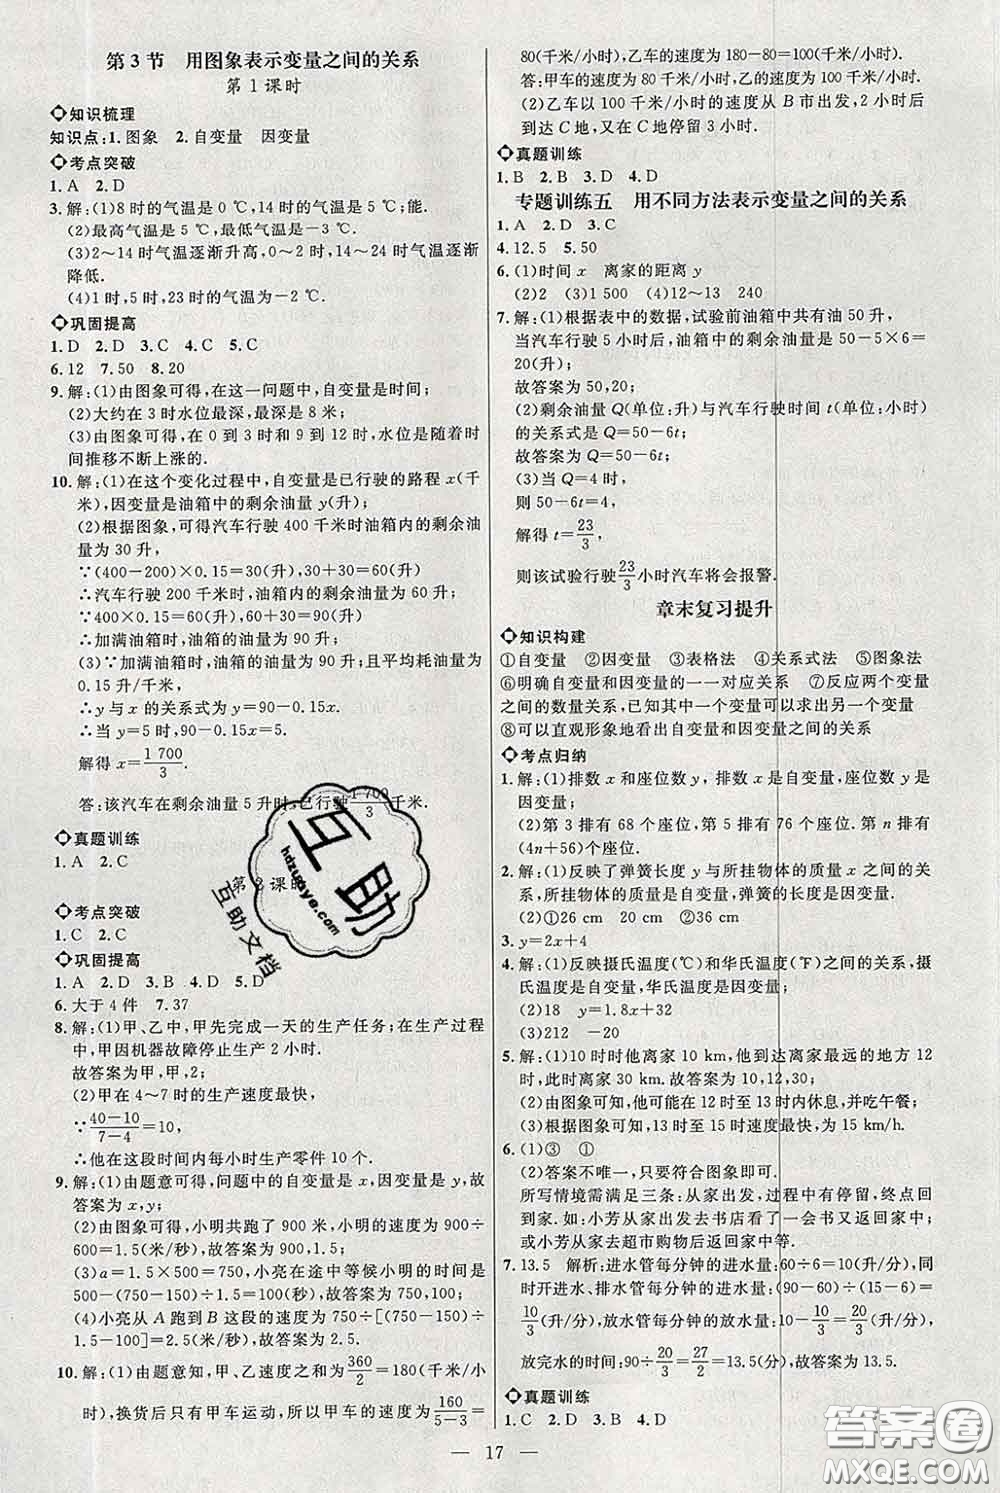 第3节　用图象表示变量之间的关系
第1课时
知识梳理
知识点:1.图象　2.自变量　因变量
考点突破
1.A　2.D
3.解:(1)8时的气温是0 ℃,14时的气温是5 ℃;能.
(2)最高气温是5 ℃,最低气温是-3 ℃.
(3)2～14时气温逐渐升高,0～2时,14～24时气温逐渐
降低.
(4)1时,5时,23时的气温为-2 ℃.
巩固提高
1.D　2.D　3.C　4.C　5.C
6.12　7.50　8.20
9.解:(1)由图象可得,在这一问题中,自变量是时间;
(2)大约在3时水位最深,最深是8米;
(3)由图象可得,在0到3时和9到12时,水位是随着时
间推移不断上涨的.
10.解:(1)在这个变化过程中,自变量是已行驶的路程x(千
米),因变量是油箱中的剩余油量y(升).
(2)根据图象,可得汽车行驶400千米时油箱内的剩余油
量为30升,
∵(400-200)×0.15=30(升),30+30=60(升)
∴汽车行驶200千米时,油箱内的剩余油量为60升.
∵400×0.15=60(升),60+30=90(升)
∴加满油箱时,油箱的油量是90升.
(3)∵加满油箱时,油箱的油量是90升;且平均耗油量为
0.15升/千米,
∴y与x的关系式为y=90-0.15x.
∴当y=5时,y=90-0.15x=5.
解得x=1 700/3.
答:该汽车在剩余油量5升时,已行驶1 700/3千米.
真题训练
1.A　2.C
第2课时
考点突破
1.C　2.C
巩固提高
1.A　2.D　3.B　4.D　5.D
6.大于4件　7.37
8.解:(1)甲、乙中,甲先完成一天的生产任务;在生产过程
中,甲因机器故障停止生产2小时.
故答案为甲,甲,2;
(2)甲在4～7时的生产速度最快,
∵(40-10)/(7-4)=10,
∴他在这段时间内每小时生产零件10个.
9.解:(1)由题意可得,问题中的自变量是x,因变量是y,故
答案为x,y;
(2)由图象可得,小明共跑了900米,小明的速度为900÷
600=1.5(米/秒),故答案为900,1.5.
(3)a=1.5×500=750,小亮在途中等候小明的时间是
500-(750-150)÷1.5=100(秒),故答案为750,100;
(4)小亮从A跑到B这段的速度为750÷[(750-150)÷
1.5-100]=2.5(米/秒),故答案为2.5.
10.解:(1)由题意知,甲、乙速度之和为360/2=180(千米/小
时),换货后只有甲车运动,所以甲车的速度为160/(5-3)=
80(千米/小时),乙车的速度为180-80=100(千米/小时).
答:甲车的速度为80千米/小时,乙车的速度为100千米/小时.
(2)乙车以100千米/小时的速度从B市出发,2小时后
到达C地,又在C地停留3小时.
真题训练
1.B　2.B　3.D　4.D
专题训练五　用不同方法表示变量之间的关系
1.A　2.D　3.D
4.12.5　5.50
6.(1)时间x　离家的距离y
(2)2　(3)1 500　(4)12～13　240
7.解:(1)根据表中的数据,试验前油箱中共有油50升,
当汽车行驶5小时后,油箱中的剩余油量是50-5×6=
20(升),
故答案为50,20;
(2)剩余油量Q(单位:升)与汽车行驶时间t(单位:小时)
的关系式是Q=50-6t;
故答案为Q=50-6t;
(3)当Q=4时,
则50-6t=4,
解得t=23/3,
则该试验行驶23/3小时汽车将会报警.
章末复习提升
知识构建
①自变量　②因变量　③表格法　④关系式法　⑤图象法
⑥明确自变量和因变量的一一对应关系　⑦反应两个变量
之间的数量关系,已知其中一个变量可以求出另一个变量
⑧可以直观形象地看出自变量和因变量之间的关系
考点归纳
1.解:(1)排数x和座位数y,排数x是自变量,座位数y是
因变量;
(2)第3排有68个座位,第5排有76个座位.第n排有
(4n+56)个座位.
2.解:(1)反映了弹簧长度y与所挂物体的质量x之间的关
系,所挂物体的质量是自变量,弹簧的长度是因变量.
(2)①26 cm　20 cm　②36 cm
3.y=2x+4
4.解:(1)反映摄氏温度(℃)和华氏温度(℉)之间的关系,摄
氏温度是自变量,华氏温度是因变量.
(2)18　y=1.8x+32
(3)212　-20
5.解:(1)10时时他离家10 km,他到达离家最远的地方12
时,此时离家30 km.故答案为10,12,30;
(2)由图象可知,他可能在12时至13时内休息,并吃午餐;
(3)由图象可知,从13时至15时速度最快,为15 km/h.
6.(1)③　①
(2)答案不唯一,只要符合图象即可.
所写情境需满足三条:从家出发,过程中有停留,终点回
到家.如:小芳从家出发去书店看了一会书又返回家中;
或小芳从家出发去超市购物后又返回家中等.
7.13.5　解析:进水管每分钟的进水量:60÷6=10(升/分),同
时开进水、排水管每分钟的进水量:(90-60)÷(15-6)=
10/3(升/分),放水管每分钟的放水量:10-10/3=20/3(升/分),
放完水的时间:90÷20/3=27/2=13.5(分),故答案为13.5.
真题训练
1.C　2.D　3.B　4.D
— 17 —
互助
hdzuoye.com
互助文档
答案圈
MXQE.COM